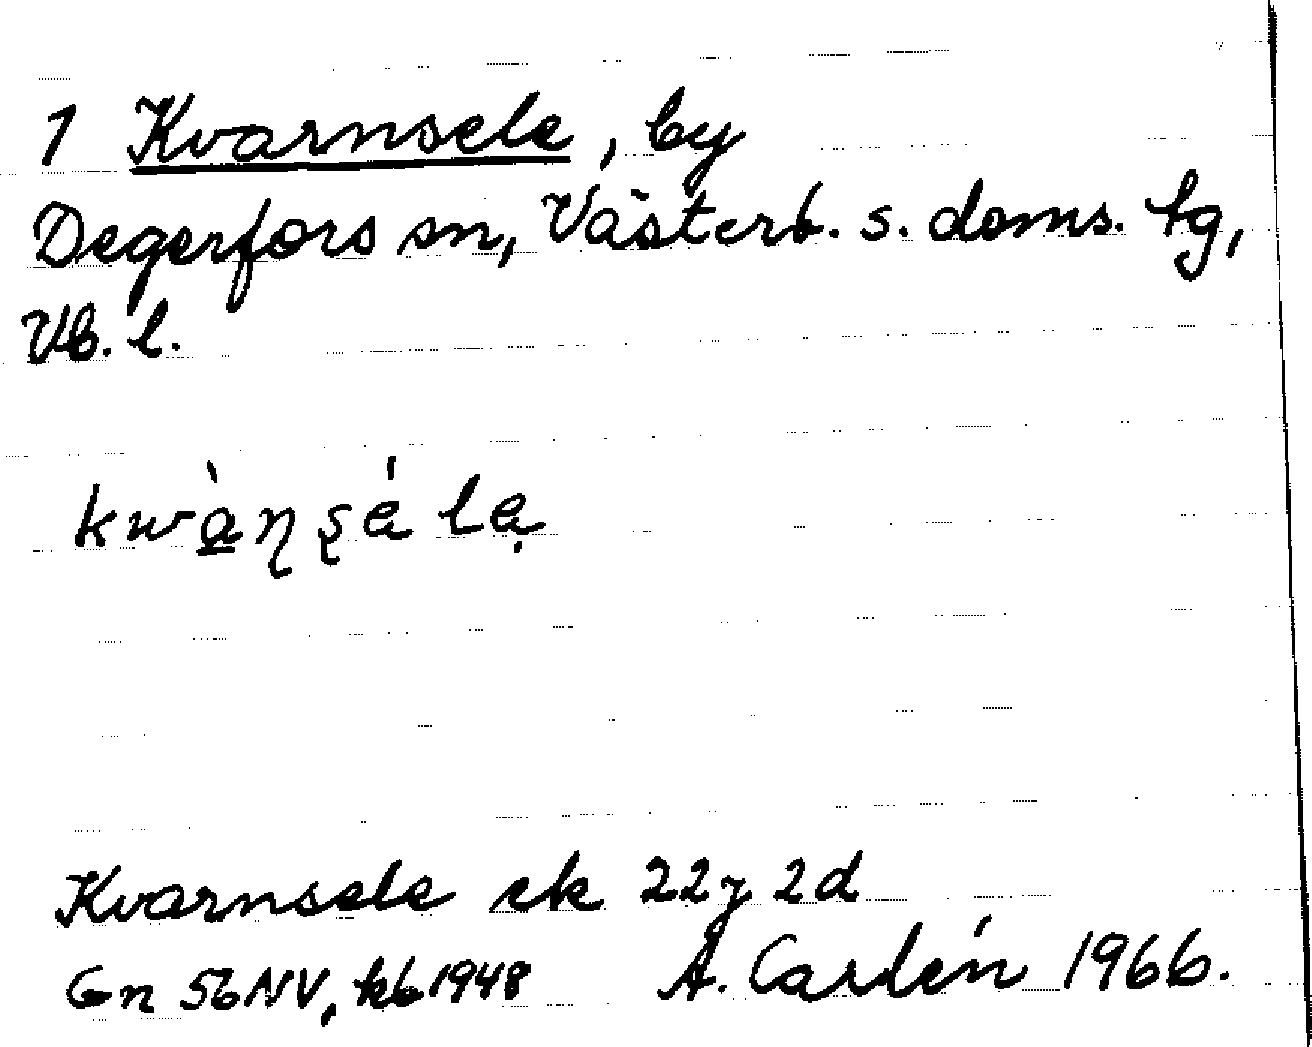 1 Kvarnsele, by
Degerfors sn, Västerb. s. doms. tg,
Vb. l.
kwà̱ɳʂélẹ
Kvarnsele ek 22j 2d
Gn 56NV, kb 1948 A. Carlén 1966.